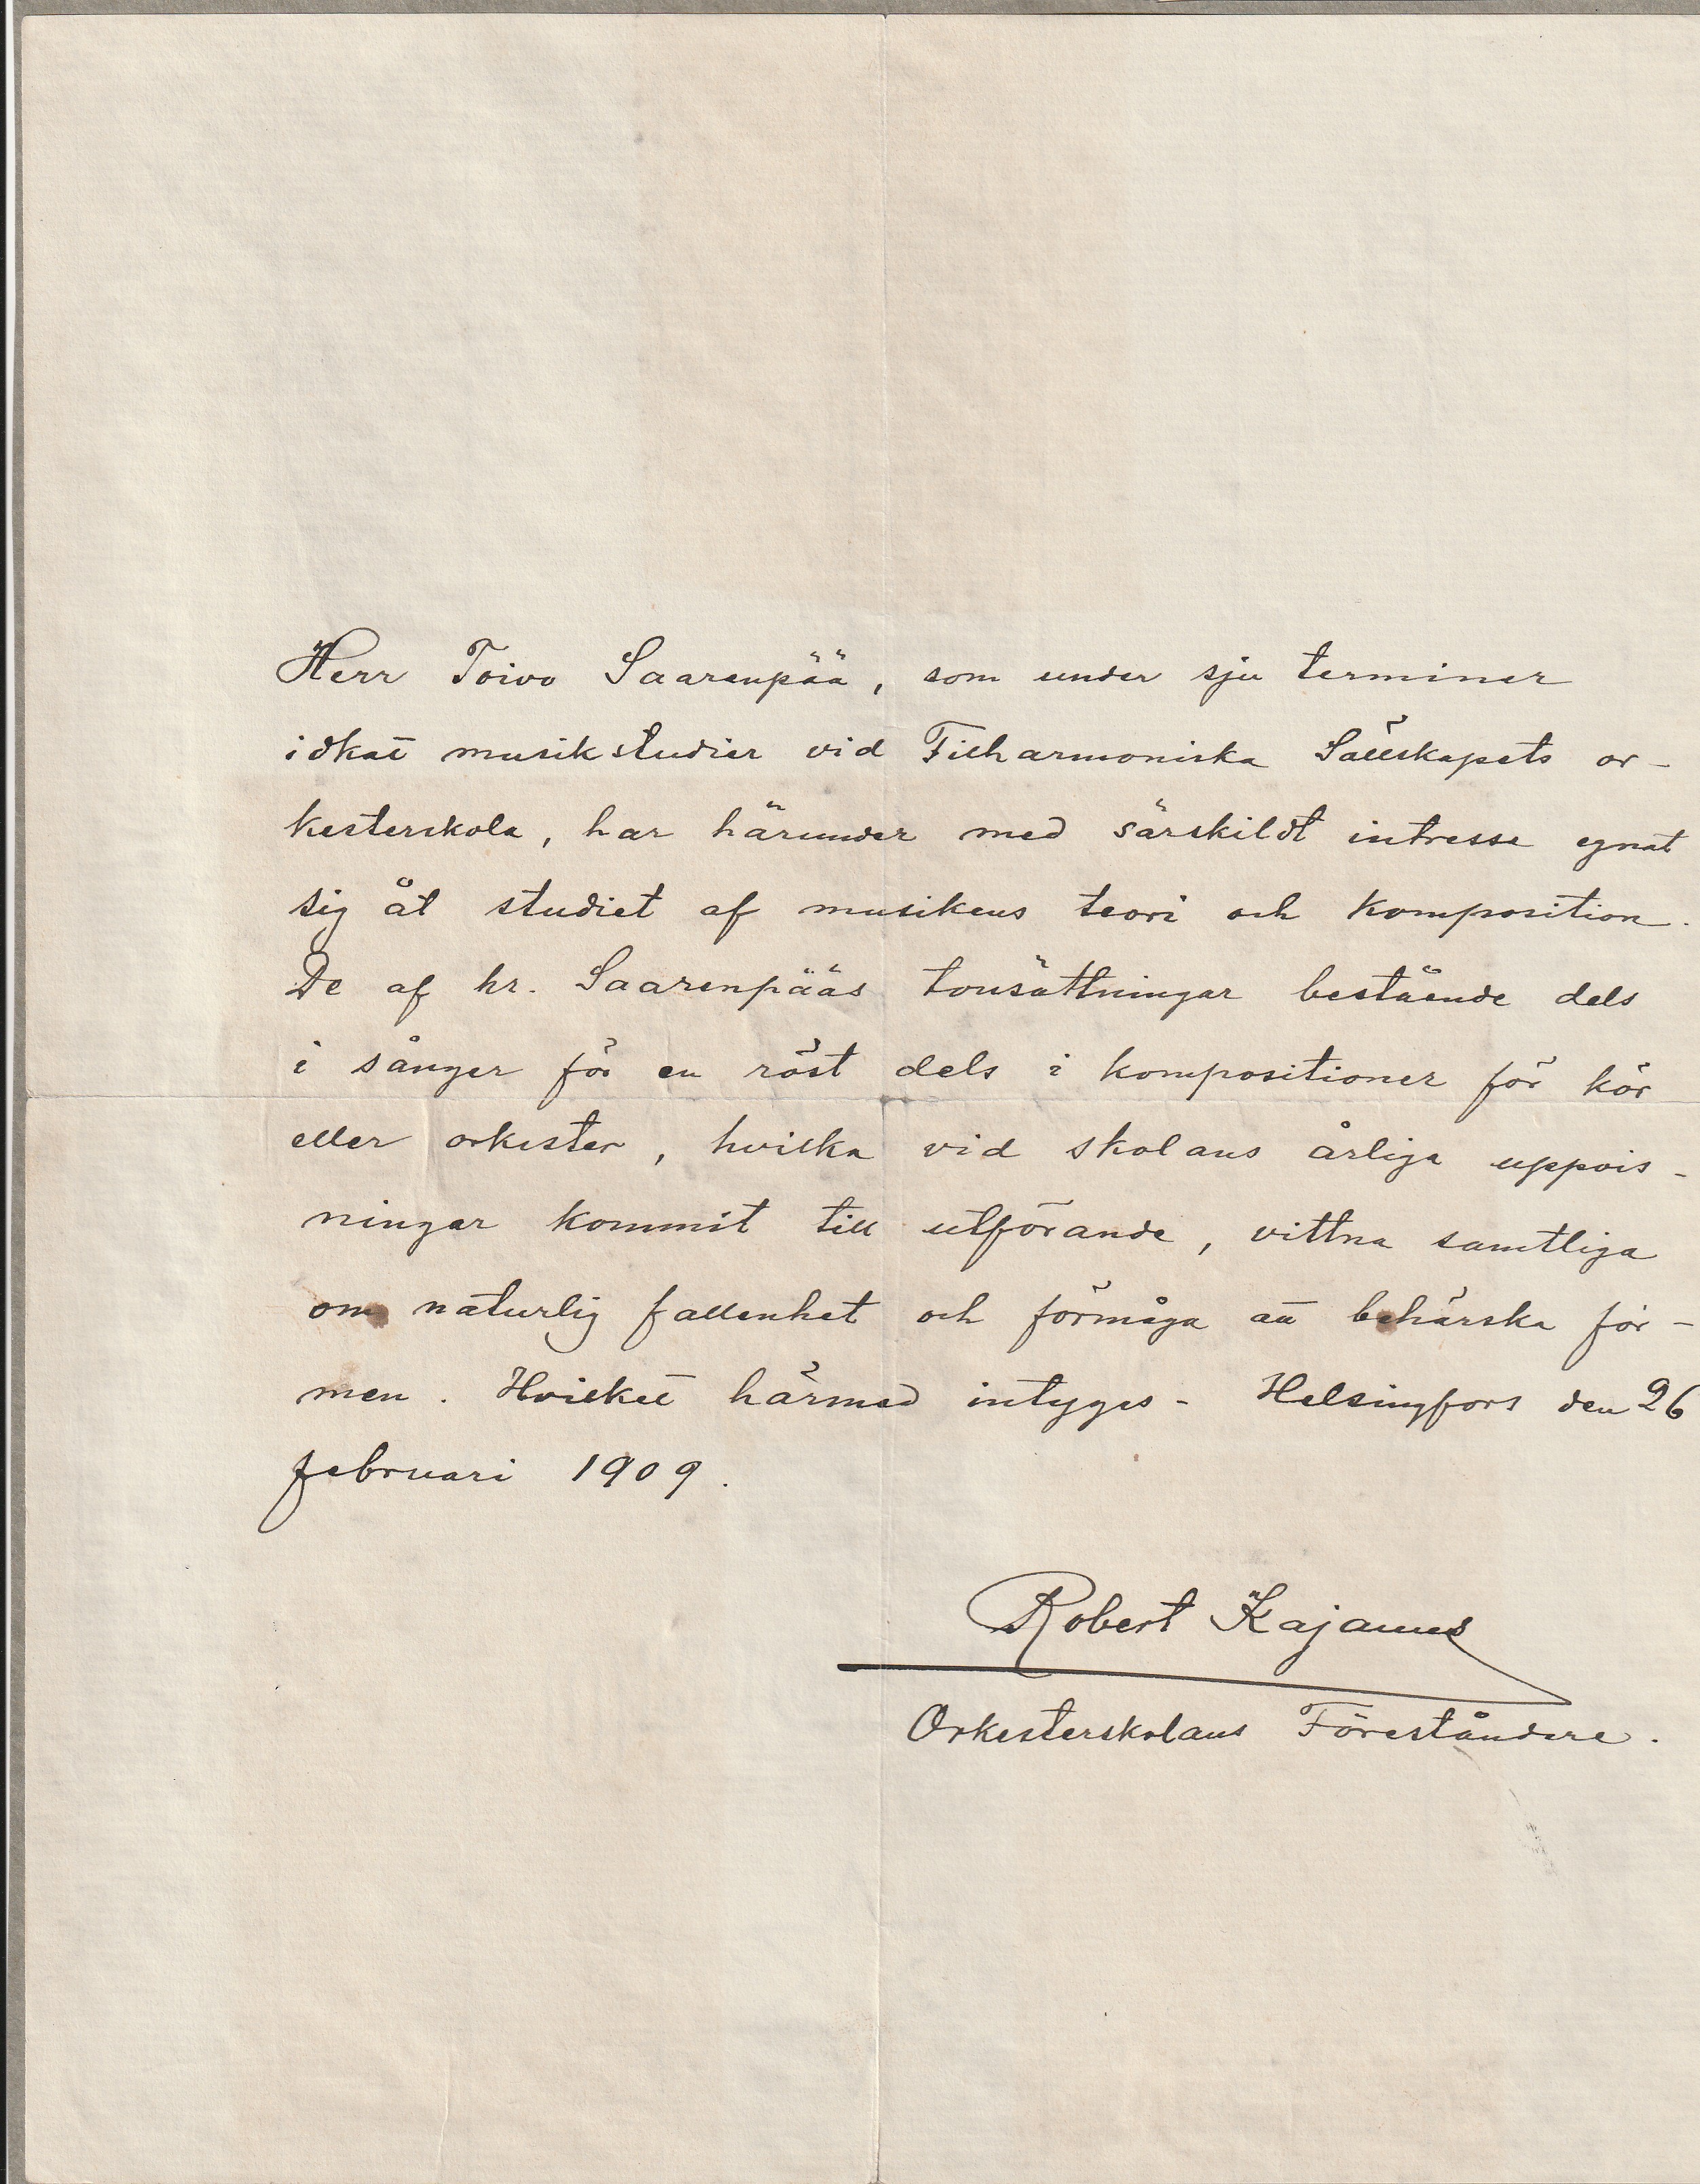 Herr Toivo Saarenpää, som under sju terminer
idkat musikstudier vid Filharmoniska Sällskapets or-
kesterskola, har härunder med särskildt intresse egnat
sig åt studiet af musikens teori och komposition.
De af hr. Saarenpääs tonsättningar bestående dels
i sånger för en röst dels i kompositioner för kör
eller orkester, hvilka vid skolans årliga uppvis-
ningar kommit till utförande, vittna samtliga
om naturlig fallenhet och förmåga att behärska for-
men. Hvilket härmed intyges - Helsingfors den 26
februari 1909.
Robert Kajanus
Orkesterskolans Föreståndare.